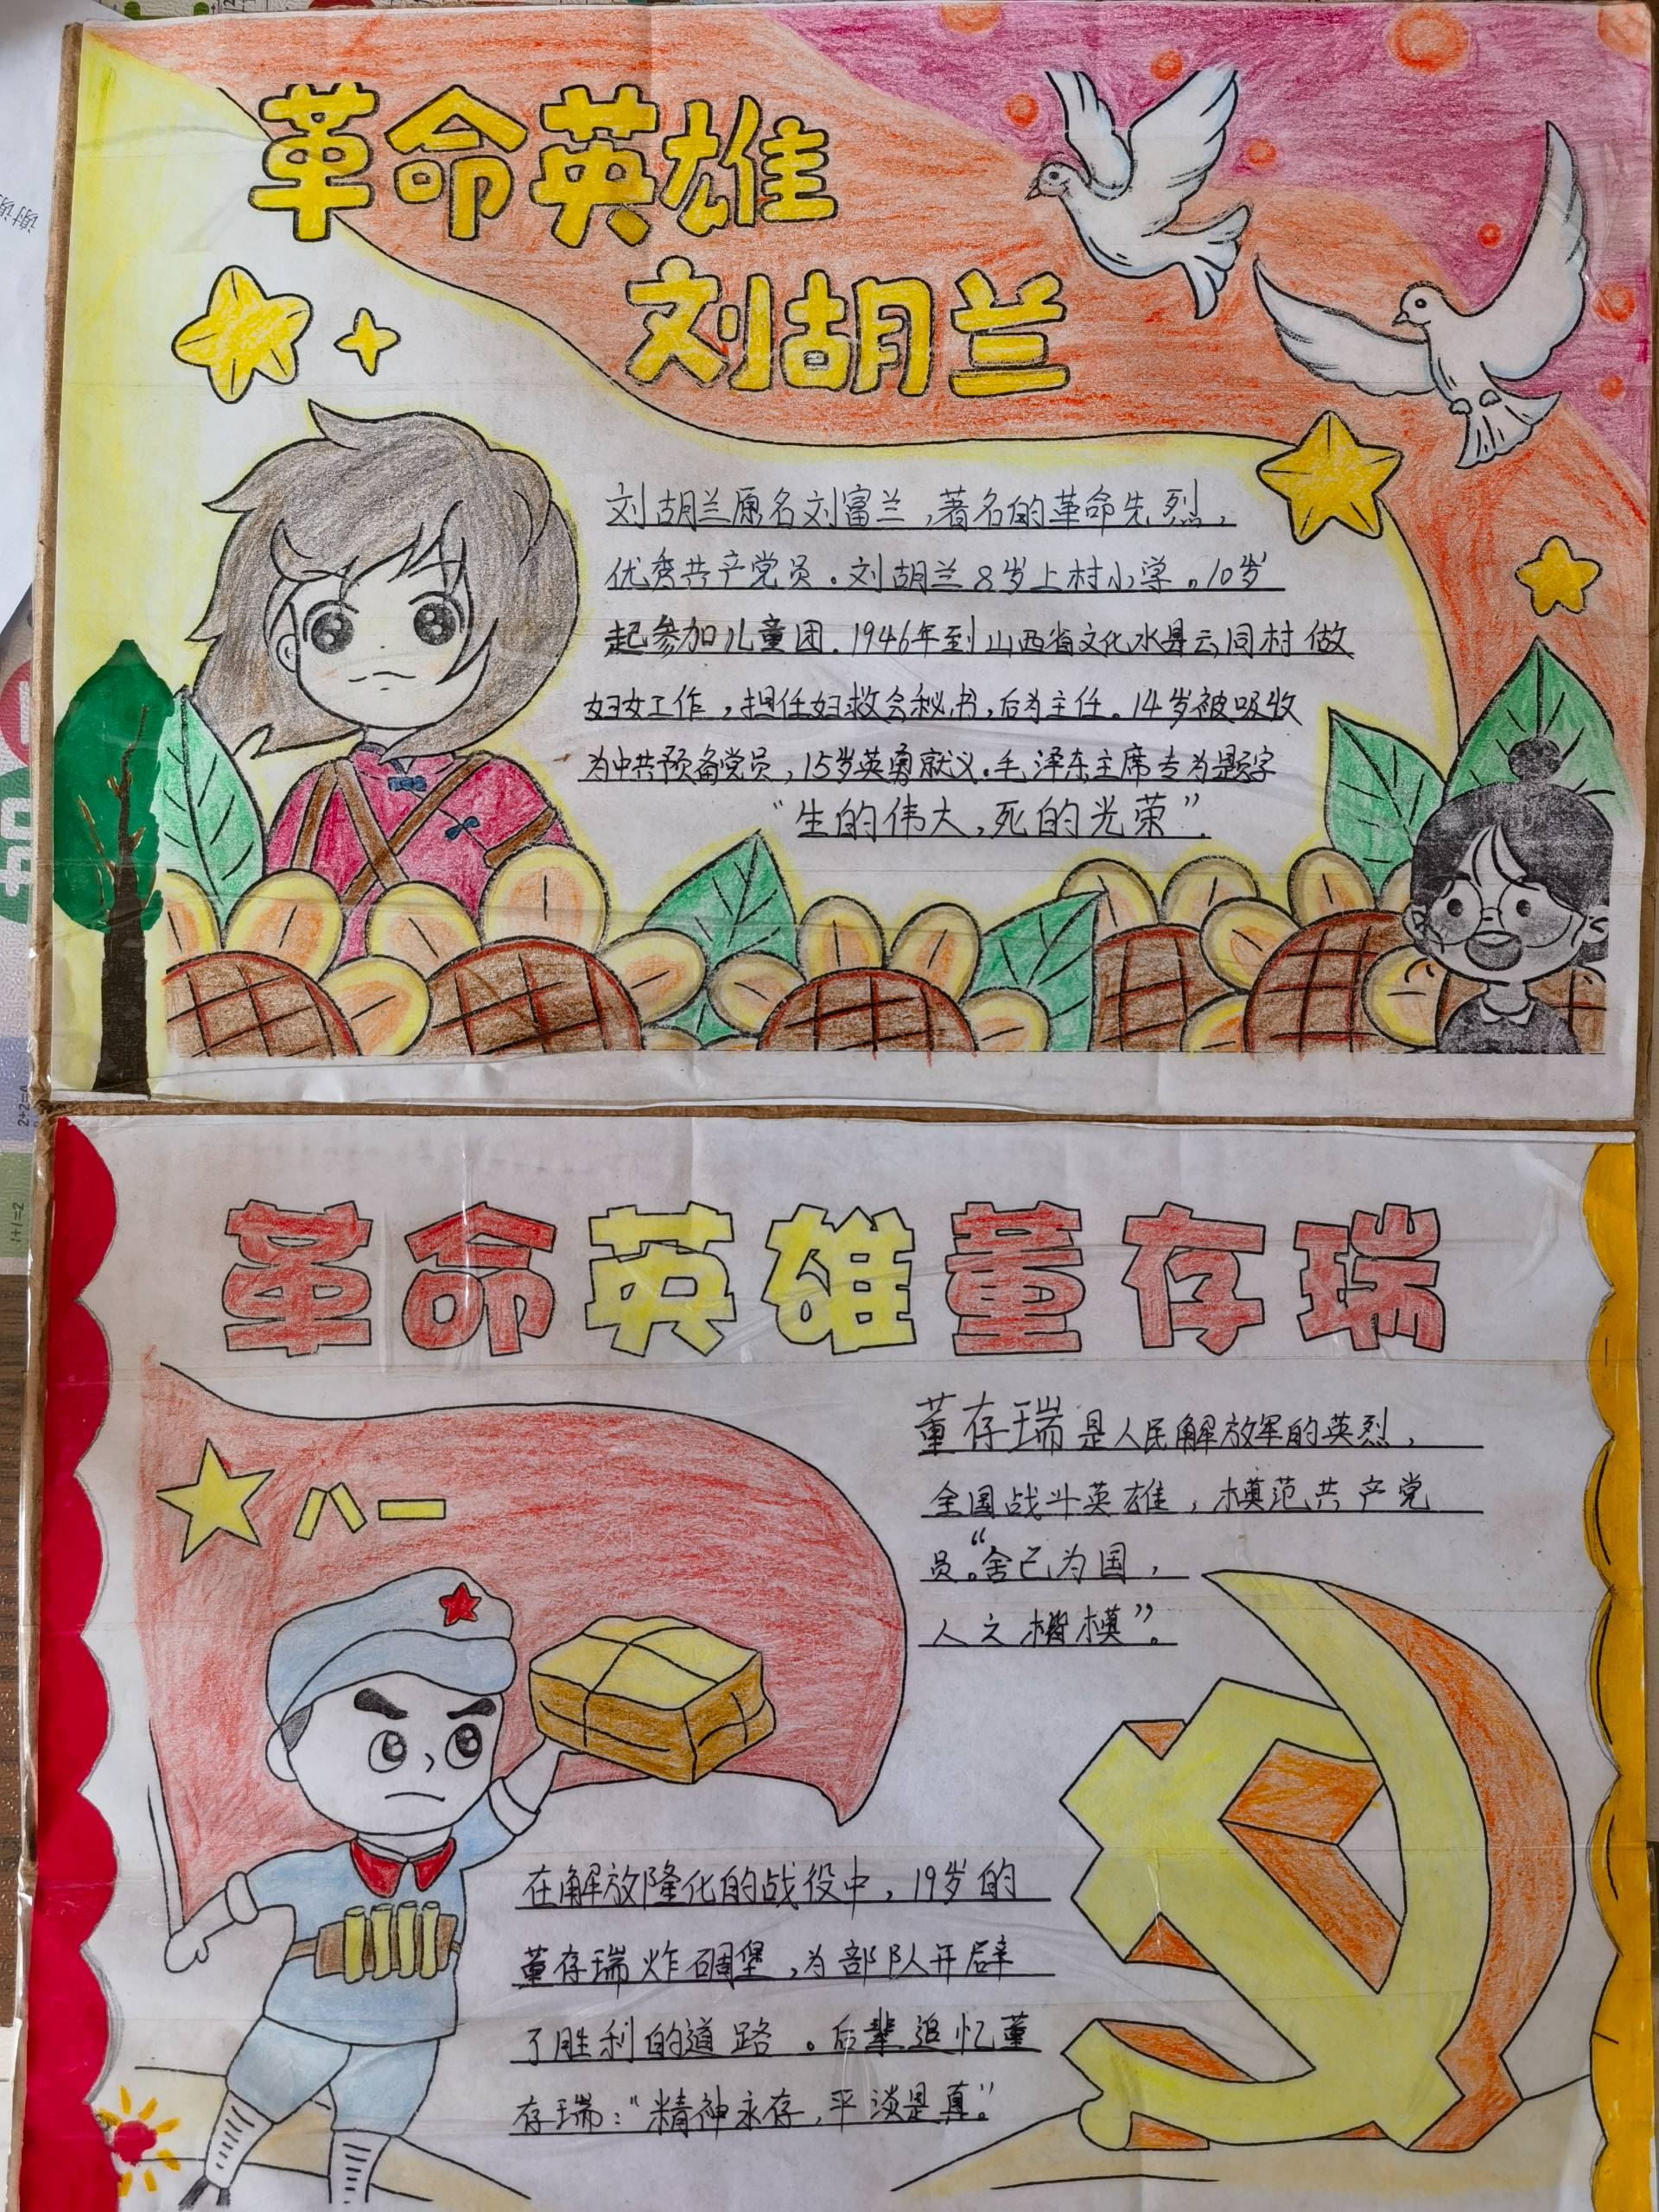 革命英雄
刘胡兰
刘胡兰原名刘富兰,著名的革命先烈,
优秀共产党员。刘胡兰8岁上村小学。10岁
起参加儿童团.1946年到山西省文化水县云同村做
妇女工作,担任妇救会秘书,后为主任。14岁被吸收
为中共预备党员,15岁英勇就义.毛泽东主席专为题字
“生的伟大,死的光荣”.
革命英雄董存瑞
董存瑞是人民解放军的英烈,
全国战斗英雄,模范共产党
员。“舍己为国,
人之楷模”。
八一
在解放隆化的战役中,19岁的
董存瑞炸碉堡,为部队开辟
了胜利的道路。后辈追忆董
存瑞:“精神永存,平淡是真”。
谢
2+2=
1+1=2